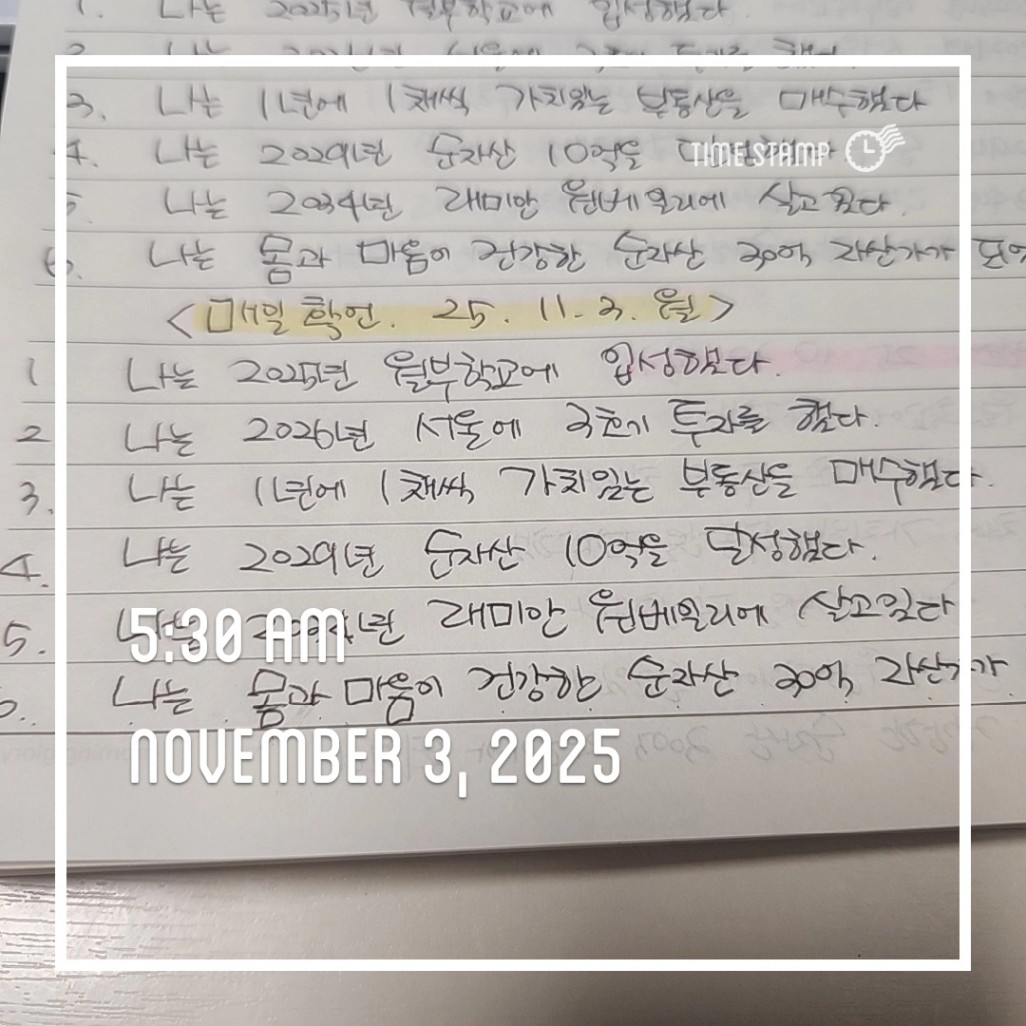 1. 나는 2025년 월부학교에 입성했다.
2 나는 2026년 서울에 3호기 투자를 했다.
3. 나는 1년에 1채씩 가치있는 부동산을 매수했다
4. 나는 2029년 순자산 10억을
TIMESTAMP
5. 나는 2034년 래미안 원베일리에 살고있다.
6. 나는 몸과 마음이 건강한 순자산 30억 자산가가 되어
<매일 확언. 25. 11. 3. 월>
1 나는 2025년 월부학교에 입성했다.
2 나는 2026년 서울에 3호기 투자를 했다.
3. 나는 1년에 1채씩 가치있는 부동산을 매수했다.
4. 나는 2029년 순자산 10억을 달성했다.
5. 나는 2034년 래미안 원베일리에 살고있다
5:30 AM
6. 나는 몸과 마음이 건강한 순자산 30억 자산가가
NOVEMBER 3, 2025